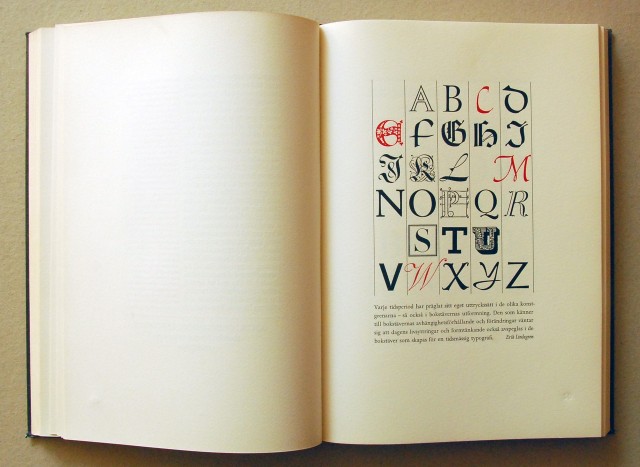 A B C D
E F G H I
J K L M
N O P Q R
S T U
V W X Y Z
Varje tidsperiod har präglat sitt eget uttryckssätt i de olika konst-
grenarna – så också i bokstävernas utformning. Den som känner
till bokstävernas avhängighetsförhållande och förändringar väntar
sig att dagens livsyttringar och formtänkande också avspeglas i de
bokstäver som skapas för en tidsmässig typografi. Erik Lindegren